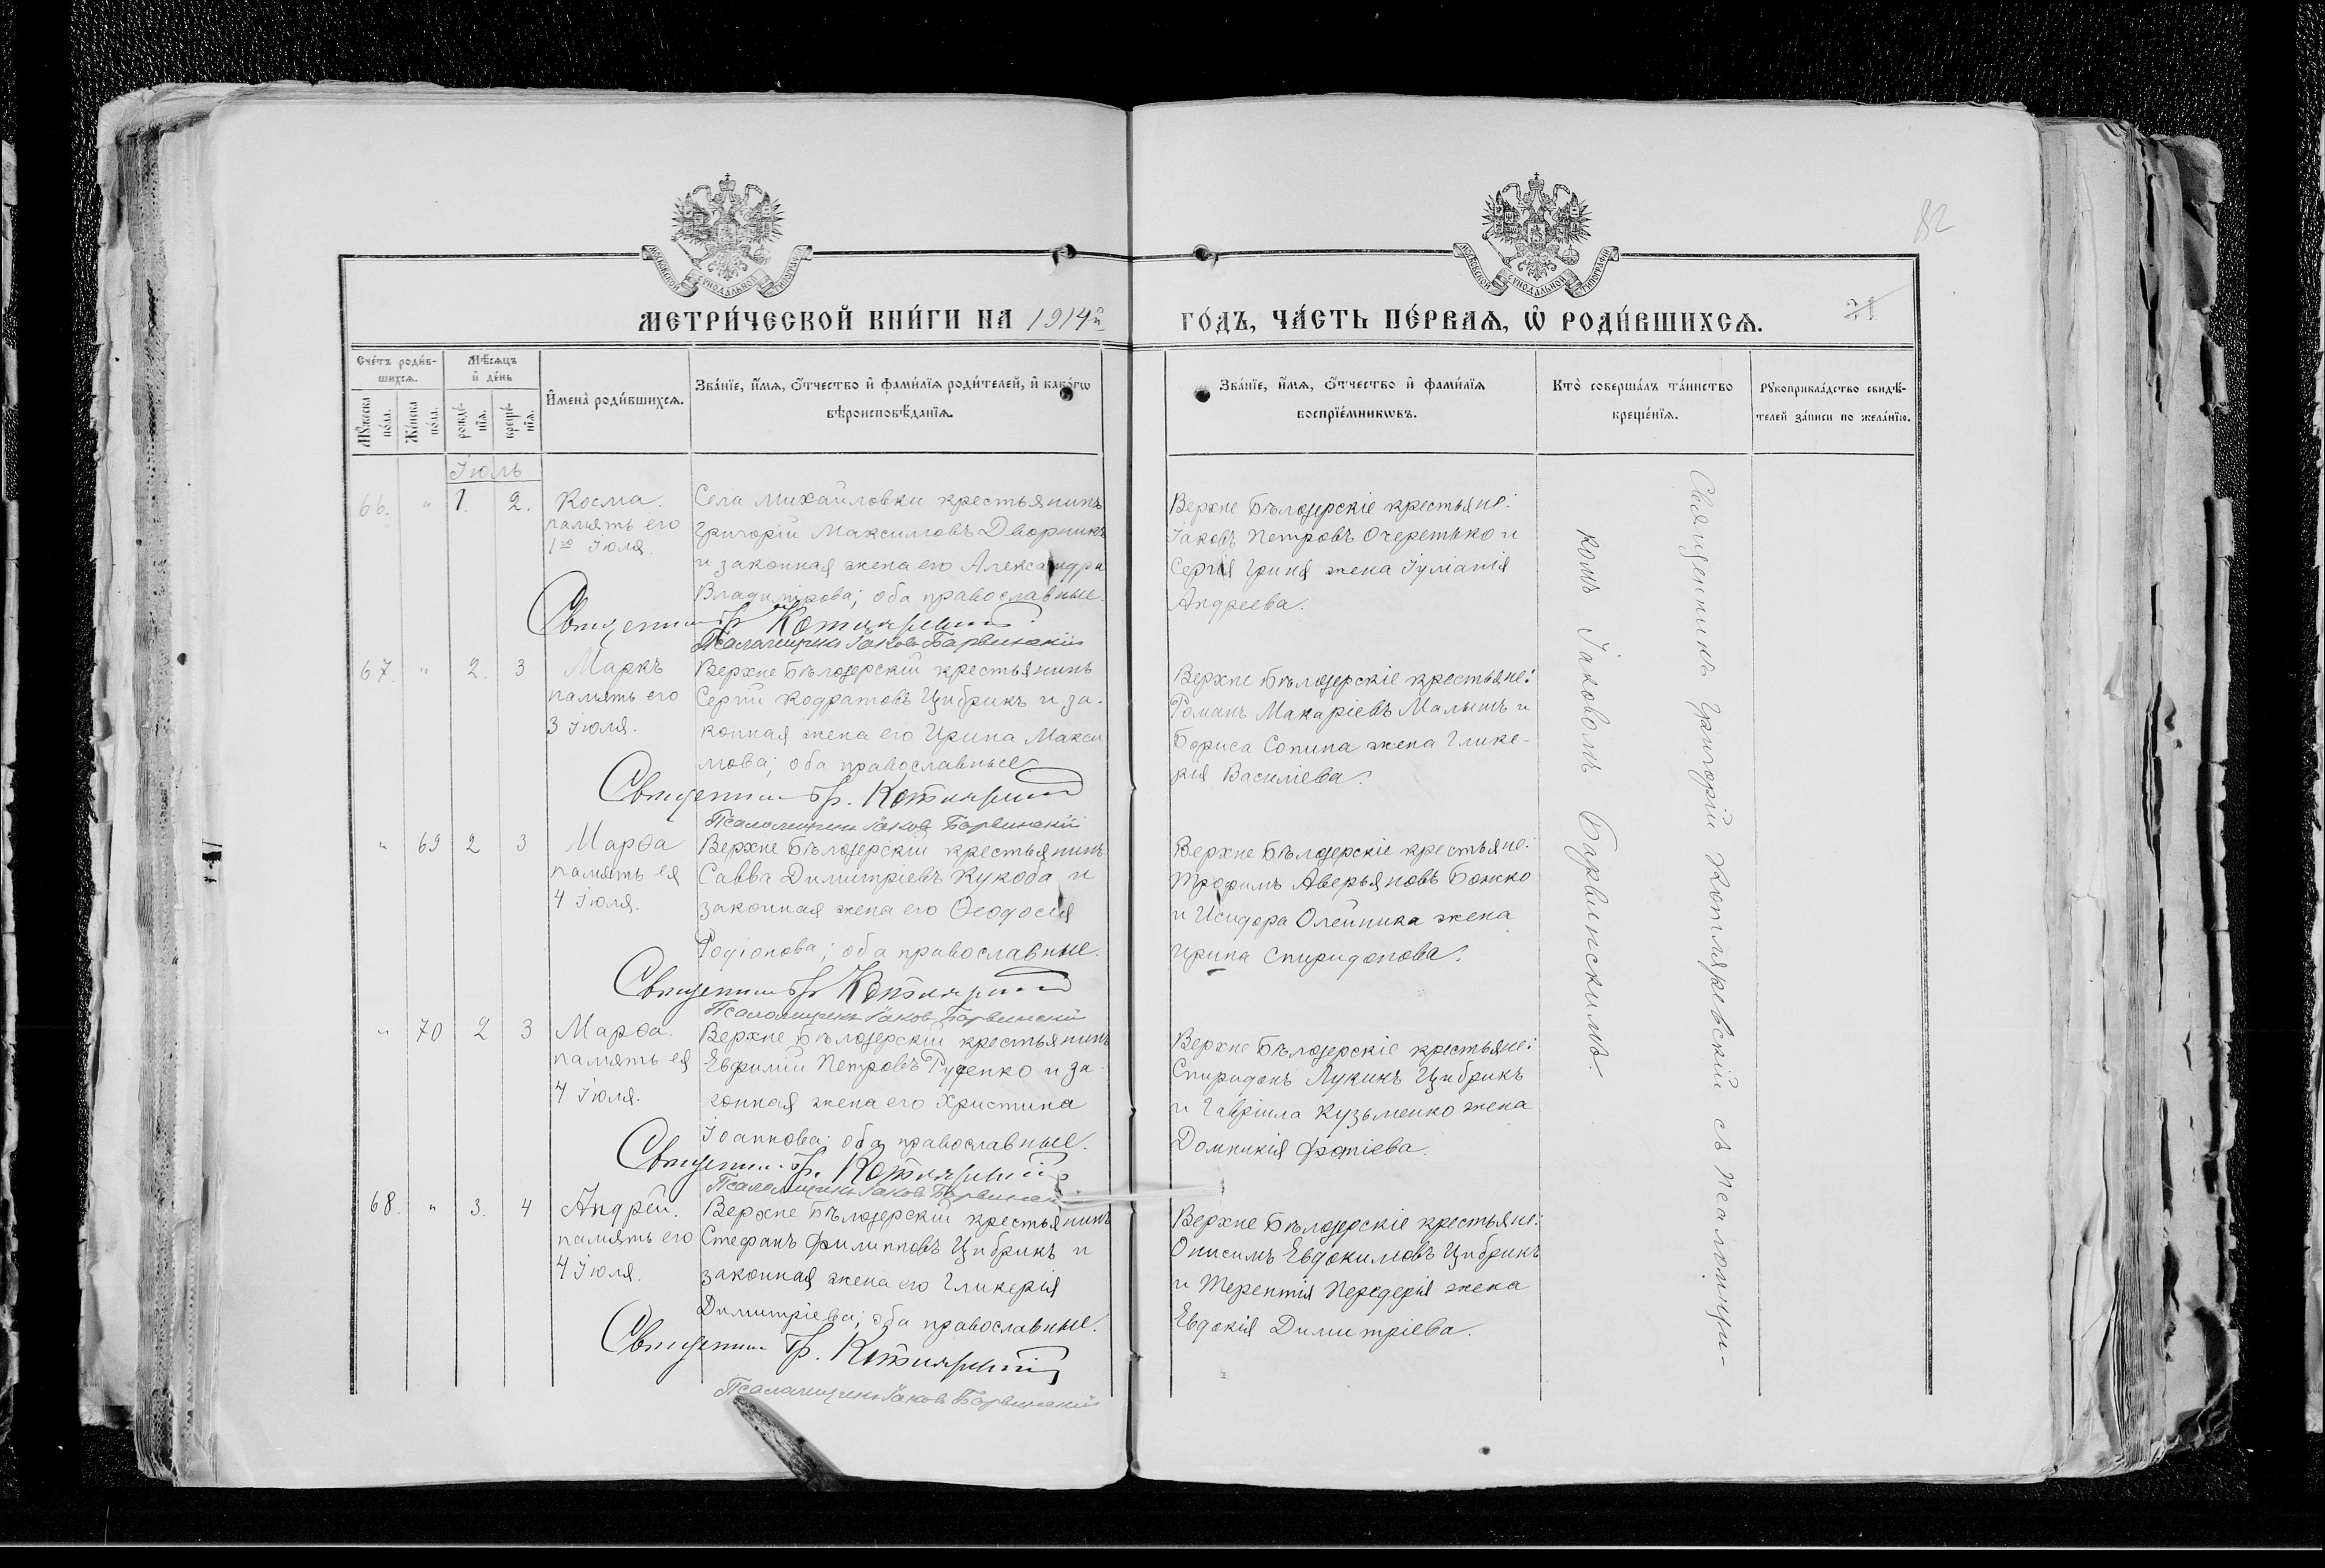 82
МОСКОВСКОЙ СУНОДАЛЬНОЙ ТИПОГРАФІИ
МОСКОВСКОЙ СУНОДАЛЬНОЙ ТИПОГРАФІИ
МЕТРИ́ЧЕСКОЙ КНИ́ГИ НА 1914й
ГО́ДЪ, ЧА́СТЬ ПЕ́РВАѦ, Ѡ҆ РОДИ́ВШИХСѦ.
21
Сче́тъ роди́в-
шихсѧ.
Мѣ́сѧцъ
и҆ де́нь
Мꙋ́жеска
по́ла.
Же́нска
по́ла.
рожде́-
нїѧ.
креще́-
нїѧ.
И҆мена̀ роди́вшихсѧ.
Зва́нїе, и҆́мѧ, ѻ҆́тчество и҆ фами́лїѧ роди́телей, и҆ како́гѡ
вѣроисповѣ́данїѧ.
Зва́нїе, и҆́мѧ, ѻ҆́тчество и҆ фами́лїѧ
воспрїе́мникѡвъ.
Кто̀ соверша́лъ та́инство
креще́нїѧ.
Рꙋкоприкла́дство свидѣ́-
телей за́писи по жела́нїю.
Іюль
66. " 1. 2. Косма.
память его
1го Іюля.
Села Михайловки крестьянинъ
Григорій Максимовъ Дворникъ
и законная жена его Александра
Владимірова; оба православные.
Священникъ Гр Котляревскій
Псаломщикъ Іаковъ Барвинскій
Верхне Бѣлозерскіе крестьяне:
Іаковъ Петровъ Очеретько и
Сергія Гриня жена Іуліанія
Андреева.
67. " 2. 3 Маркъ
память его
3 Іюля.
Верхне Бѣлозерскій крестьянинъ
Сергій Кодратовъ Цибрикъ и за-
конная жена его Ирина Макси
мова; оба православные
Священникъ Гр. Котляревскій
Псаломщикъ Іаковъ Барвинскій
Верхне Бѣлозерскіе крестьяне:
Романъ Макаріевъ Малышъ и
Бориса Сопина жена Глике-
рія Василіева.
" 69 2 3 Марѳа
память ея
4 Іюля.
Верхне Бѣлозерскій крестьянинъ
Савва Димитріевъ Кукоба и
законная жена его Ѳеодосія
Родіонова; оба православные.
Священникъ Гр Котляревскій
Псаломщикъ Іаковъ Барвинскій
Верхне Бѣлозерскіе крестьяне:
Трофимъ Аверьяновъ Божко
и Исидора Олейника жена
Ирина Спиридонова.
" 70 2 3 Марѳа.
память ея
4 Іюля.
Верхне Бѣлозерскій крестьянинъ
Евфимій Петровъ Руденко и за
конная жена его Христина
Іоаннова; оба православные.
Священник Гр. Котляревскій
Псаломщикъ Іаковъ Барвинскій
Верхне Бѣлозерскіе крестьяне:
Спиридонъ Лукинъ Цибрикъ
и Гавріила Кузьменко жена
Домникія Фотіева.
68. " 3. 4 Андрей.
память его
4 Іюля.
Верхне Бѣлозерскій крестьянинъ
Стефанъ Филипповъ Цибрикъ и
законная жена его Гликерія
Димитріева; оба православные.
Священник Гр. Котляревскій
Псаломщикъ Іаковъ Барвинскій
Верхне Бѣлозерскіе крестьяне:
Онисимъ Евдокимовъ Цибрикъ
и Терентія Передерія жена
Евдокія Димитріева.
Священникъ Григорій Котляревскій съ Псаломщи-
комъ Іаковомъ Барвинскимъ.